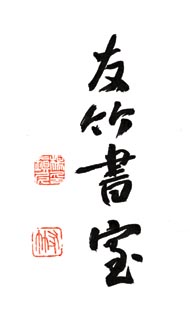 友竹書室